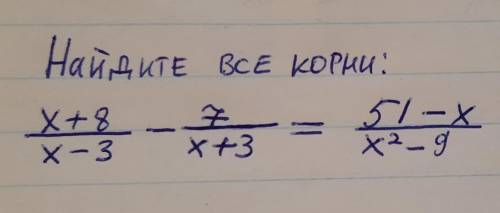 Найдите все корни:
x+8/x-3 - 7/x+3 = 51-x/x²-9